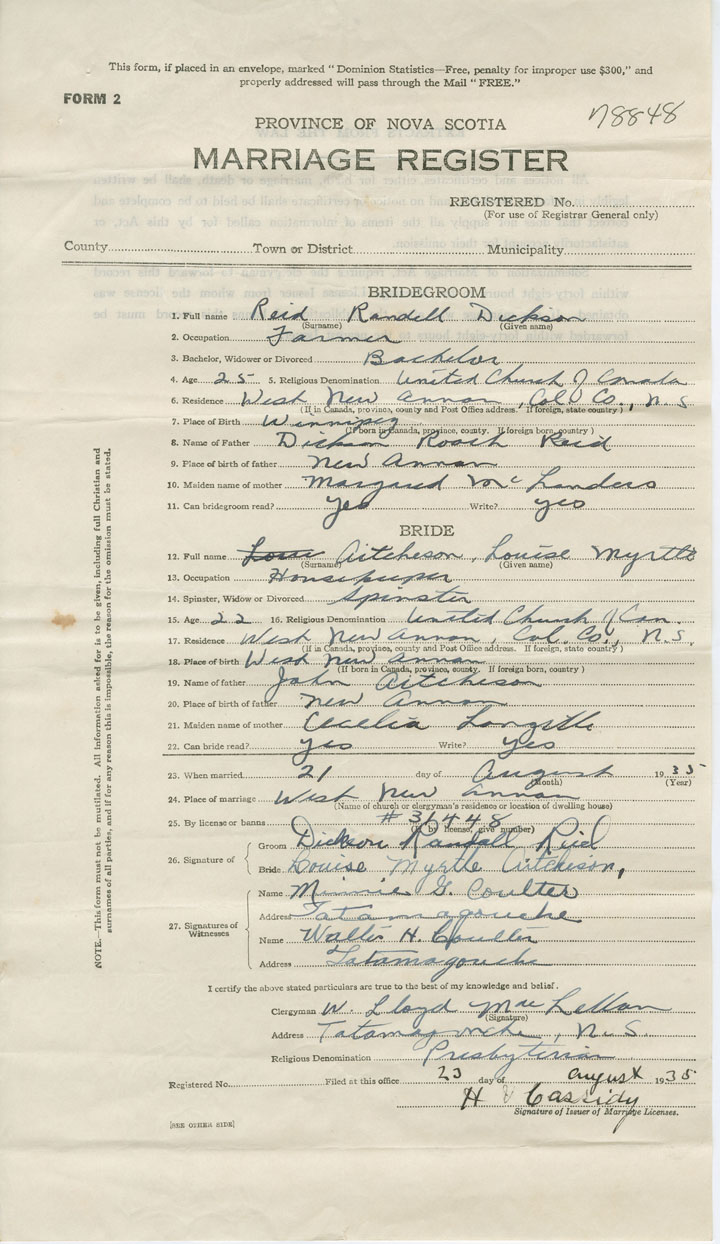 This form, if placed in an envelope, marked "Dominion Statistics—Free, penalty for improper use $300," and
properly addressed will pass through the Mail "FREE."
FORM 2
78848
PROVINCE OF NOVA SCOTIA
MARRIAGE REGISTER
REGISTERED No.
(For use of Registrar General only)
County Town or District Municipality
BRIDEGROOM
1. Full name Reid Randell Dickson
(Surname) (Given name)
2. Occupation Farmer
3. Bachelor, Widower or Divorced Bachelor
4. Age 25 5. Religious Denomination United Church of Canada
6. Residence West New Annan, Col. Co., N.S
(If in Canada, province, county and Post Office address. If foreign, state country)
7. Place of Birth Winnipeg
(If born in Canada, province, county. If foreign born, country)
8. Name of Father Dickson Roach Reid
9. Place of birth of father New Annan
10. Maiden name of mother Margaret Mc Landers
11. Can bridegroom read? yes Write? yes
BRIDE
12. Full name Aitcheson, Louise Myrtle
(Surname) (Given name)
13. Occupation Housekeeper
14. Spinster, Widow or Divorced Spinster
15. Age 22 16. Religious Denomination United Church of Can.
17. Residence West New Annan, Col. Co., N.S.
(If in Canada, province, county and Post Office address. If foreign, state country)
18. Place of birth West New Annan
(If born in Canada, province, county. If foreign born, country)
19. Name of father John Aitcheson
20. Place of birth of father New Annan
21. Maiden name of mother Cecelia Langille
22. Can bride read? yes Write? yes
23. When married 21 day of August 1935
(Month) (Year)
24. Place of marriage West New Annan
(Name of church or clergyman's residence or location of dwelling house)
25. By license or banns #31448
(If by license, give number)
26. Signature of Groom Dickson Randall Reid
Bride Louise Myrtle Aitcheson,
27. Signatures of Witnesses Name Minnie G. Coulter
Address Tatamagouche
Name Walter H. Coulter
Address Tatamagouche
I certify the above stated particulars are true to the best of my knowledge and belief.
Clergyman W. Lloyd MacLellan
(Signature)
Address Tatamagouche, N.S.
Religious Denomination Presbyterian
Registered No. Filed at this office 23 day of August 1935
H Cassidy
Signature of Issuer of Marriage Licenses.
[SEE OTHER SIDE]
NOTE.—This form must not be mutilated. All information asked for is to be given, including full Christian and
surnames of all parties, and if for any reason this is impossible, the reason for the omission must be stated.